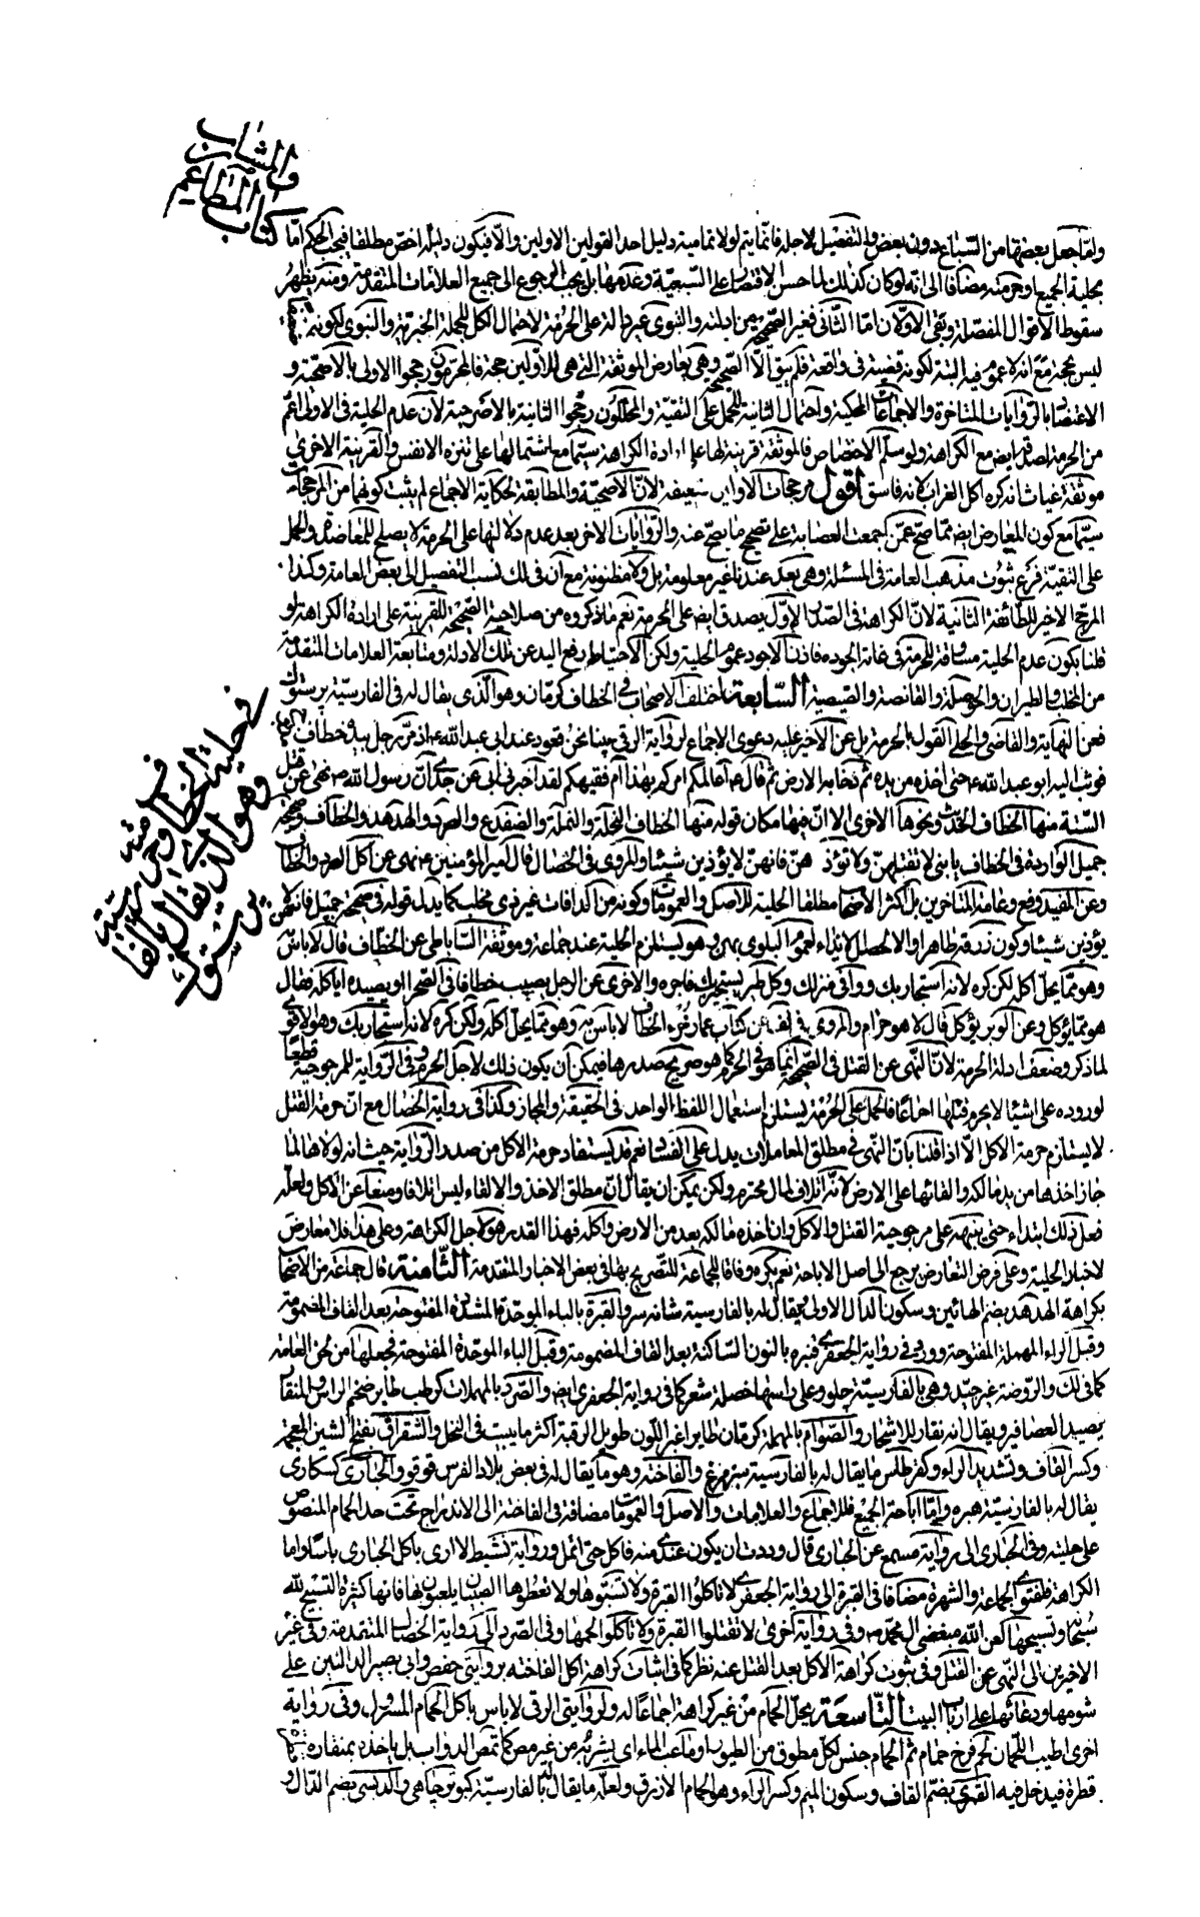 كتاب المطاعم
والمشارب
ولما جعل بعضها من السباع دون بعض والتفصيل لاجله فانما يتم لولا تمامية دليل احد القولين الاولين والا فيكون دليله اخص مطلقا فيجب الحكم اما
بحلية الجميع او حرمته مضافا الى انه لو كان كذلك لما حسن الاقتصار على السبعية وعدمها بل يجب الرجوع الى جميع العلامات المتقدمة ومنه يظهر
سقوط الاقوال المفصلة وبقى الاولان اما الثانى فغير الصحيحة من ادلته والنبوى غير دالة على الحرمة لاحتمال الكل للجملة الخبرية والنبوى لكونه
ليس بحجة مع انه لا عموم فيه البتة لكونه قضية فى واقعة فلم يبق الا الصحيحة وهى يعارض الموثقة التى هى للاولين حجة فالمحرمون رجحوا الاولى بالاصحية و
الاعتضاد بالروايات المتاخرة والاجماعات المحكية واحتمال الثانية للحمل على التقية والمحللون رجحوا الثانية بالاصرحية لان عدم الحلية فى الاولى اعم
من الحرمة لصدقه ايضا مع الكراهة ولو سلم الاختصاص فالموثقة قرينة لها على ارادة الكراهة سيما مع اشتمالها على تنزه الانفس والقرينة الاخرى
موثقة غياث انه كره اكل الغراب لانه فاسق اقول مرجحات الاولين ضعيفة لان الاصحية والمطابقة لحكاية الاجماع لم يثبت كونهما من المرجحات
سيما مع كون المعارض ايضا مما صح عمن اجمعت العصابة على تصحيح ما يصح عنه والروايات الاخر بعد عدم دلالتها على الحرمة لا يصلح للمعاضدة والحمل
على التقية فرع ثبوت مذهب العامة فى المسئلة وهى بعد عندنا غير معلومة بل ولا مظنونة مع ان فى لك نسب التفصيل الى بعض العامة وكذا
المرجح الاخير للطائفة الثانية لان الكراهة فى الصدر الاول يصدق ايضا على الحرمة نعم ما ذكروه من صلاحية الصحيحة للقرينة على ارادة الكراهة لو
قلنا بكون عدم الحلية مساوقة للحرمة فى غاية الجودة فاذن الاجود عموم الحلية ولكن الاحتياط رفع اليد عن تلك الادلة ومتابعة العلامات المتقدمة
من المخلب والطيران والحوصلة والقانصة والصيصية السابعة اختلف الاصحاب فى الخطاف كرمان وهو الذى يقال له فى الفارسية پرستوك
فعن النهاية والقاضى والحلى القول بالحرمة بل عن الاخير عليه دعوى الاجماع لرواية الرقى بينا نحن قعود عند ابى عبد الله ع اذ مر رجل بيده خطاف مذبوح
فوثب اليه ابو عبد الله ع حتى اخذه من يده ثم دحا به الارض ثم قال ع اعالمكم امركم بهذا ام فقيهكم لقد اخبرنى ابى عن جدى ان رسول الله ص نهى عن قتل
الستة منها الخطاف الحديث ونحوها الاخرى الا ان فيها مكان قوله منها الخطاف النحلة والنملة والضفدع والصرد والهدهد والخطاف وصحيحة
جميل الواردة فى الخطاف يا بنى لا تقتلهن ولا تؤذهن فانهن لا يؤذين شيئا والمروى فى الخصال قال امير المؤمنين ع نهى عن اكل الصرد والخطاف
وعن المفيد وفع وعامة المتاخرين بل اكثر الاصحاب مطلقا الحلية للاصل والعمومات وكونه من الدافات غير ذى مخلب كما يدل قوله فى صحيحة جميل فانهن لا
يؤذين شيئا وكون زرقه طاهرا والا لحصل الايذاء لعموم البلوى بهن وهو يستلزم الحلية عند جماعة وموثقة الساباطى عن الخطاف قال لا باس
وهو مما يحل اكله لكن كره لانه استجار بك ووافى منزلك وكل طير يستجير بك فاجره والاخرى عن الرجل يصيب خطافا فى الصحرا او يصيده ايأكله فقال
هو مما يؤكل وعن الوبر يؤكل قال لا هو حرام والمروى فى لف عن كتاب عمار خرء الخطاف لا باس به وهو مما يحل اكله ولكن كره لانه استجار بك وهو الاقوى
لما ذكر وضعف ادلة الحرمة لان النهى عن القتل فى الصحيحة انما هو فى الحرم كما هو صريح صدرها فيمكن ان يكون ذلك لاجل الحرم وفى الرواية للمرجوحية قطعا
لوروده على اشيا لا يحرم قتلها اجماعا فالحمل على الحرمة يستلزم استعمال اللفظ الواحد فى الحقيقة والمجاز وكذا فى رواية الخصال مع ان حرمة القتل
لا يستلزم حرمة الاكل الا اذا قلنا بان النهى فى مطلق المعاملات يدل على الفساد نعم قد يستفاد حرمة الاكل من صدر الرواية حيث انه لولاها لما
جاز اخذها من يد مالكه والقائها على الارض لانه اتلاف لمال محترم ولكن يمكن ان يقال ان مطلق الاخذ والالقاء ليس اتلافا ومنعا عن الاكل ولعله
فعل ذلك ابتداء حتى ينبهه على مرجوحية القتل والاكل وان اخذه مالكه بعد من الارض واكله فهذا القدر هو لاجل الكراهة وعلى هذا فلا معارض
لاخبار الحلية وعلى فرض التعارض يرجع الى اصل الاباحة نعم يكره وفاقا للجماعة للتصريح بها فى بعض الاخبار المتقدمة الثامنة قال جماعة من الاصحاب
بكراهة الهدهد بضم الهائين وسكون الدال الاولى يقال له بالفارسية شانه سر والقبرة بالباء الموحدة المشددة المفتوحة بعد القاف المضمومة
وقبل الراء المهملة المفتوحة وورد فى رواية الجعفرى قنبره بالنون الساكنة بعد القاف المضمومة وقبل الباء الموحدة المفتوحة فجعلها من لحن العامة
كما فى لك والروضة غير جيد وهى بالفارسية چلو وعلى راسها خصلة شعر كما فى رواية الجعفرى ايضا والصرد بالمهملات كرطب طاير ضخم الراس والمنقار
يصيد العصافير ويقال انه نقار للاشجار والصوام بالمهملة كرمان طاير اغبر اللون طويل الرقبة اكثر ما يبيت فى النخل والشقراق بفتح الشين المعجمة
وكسر القاف وتشديد الراء وكقرطاس ما يقال له بالفارسية سبزمرغ والفاختة وهو ما يقال له فى بعض بلاد الفرس قوقو والحبارى كسكارى
يقال له بالفارسية هبره واما اباحة الجميع فللاجماع والعلامات والاصل والعمومات مضافة فى الفاختة الى الاندراج تحت حد الحمام المنصوص
على حليته وفى الحبارى الى رواية مسمع عن الحبارى قال وددت ان يكون عندى منه فاكل حتى اتمل ورواية نشيط لا ارى باكل الحبارى باسا واما
الكراهة فلفتوى الجماعة والشهرة مضافا فى القبرة الى رواية الجعفرى لا تاكلوا القبرة ولا تسبوها ولا تعطوها الصبيان يلعبون بها فانها كثيرة التسبيح لله
سبحانه وتسبيحها لعن الله مبغضى ال محمد ص وفى رواية اخرى لا تقتلوا القبرة ولا تاكلوا لحمها وفى الصرد الى رواية الخصال المتقدمة وفى غير
الاخيرين الى النهى عن القتل وفى ثبوت كراهة الاكل بعد القتل عنه نظر كما فى اثبات كراهة اكل الفاختة بروايتى حفص وابى بصير الدالتين على
شومها ودعائها على ارباب البيت التاسعة يحل الحمام من غير كراهة اجماعا له ولروايتى الرقى لا باس باكل الحمام المسرول وفى رواية
اخرى اطيب اللحمان لحم فرخ حمام ثم الحمام جنس لكل مطوق من الطيور او ما عب الماء اى يشربه من غير مص كما تمص الدواب بل ياخذه بمنقاره
قطرة فيدخل فيه القمرى بضم القاف وسكون الميم وكسر الراء وهو الحمام الازرق ولعله ما يقال له بالفارسية كبوتر چاهى والدبسى بضم الدال و
فى حلية الخطاف
وهو الذى يقال بالفا
رسية پرستوك